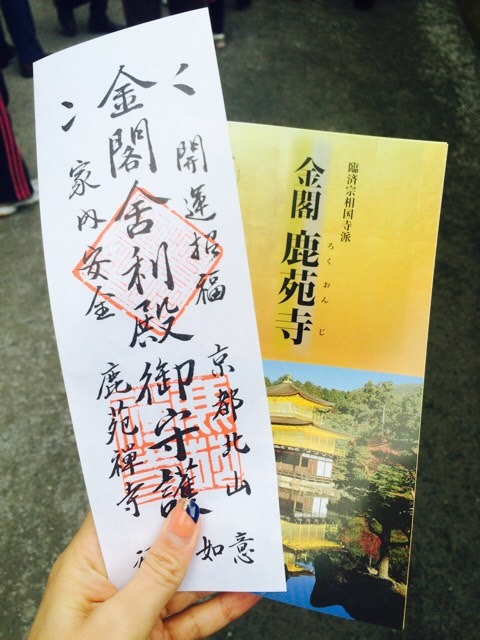 開運招福
京都北山
金閣舎利殿御守護
家内安全
鹿苑禪寺
如意
臨済宗相国寺派
金閣 鹿苑寺
ろくおんじ